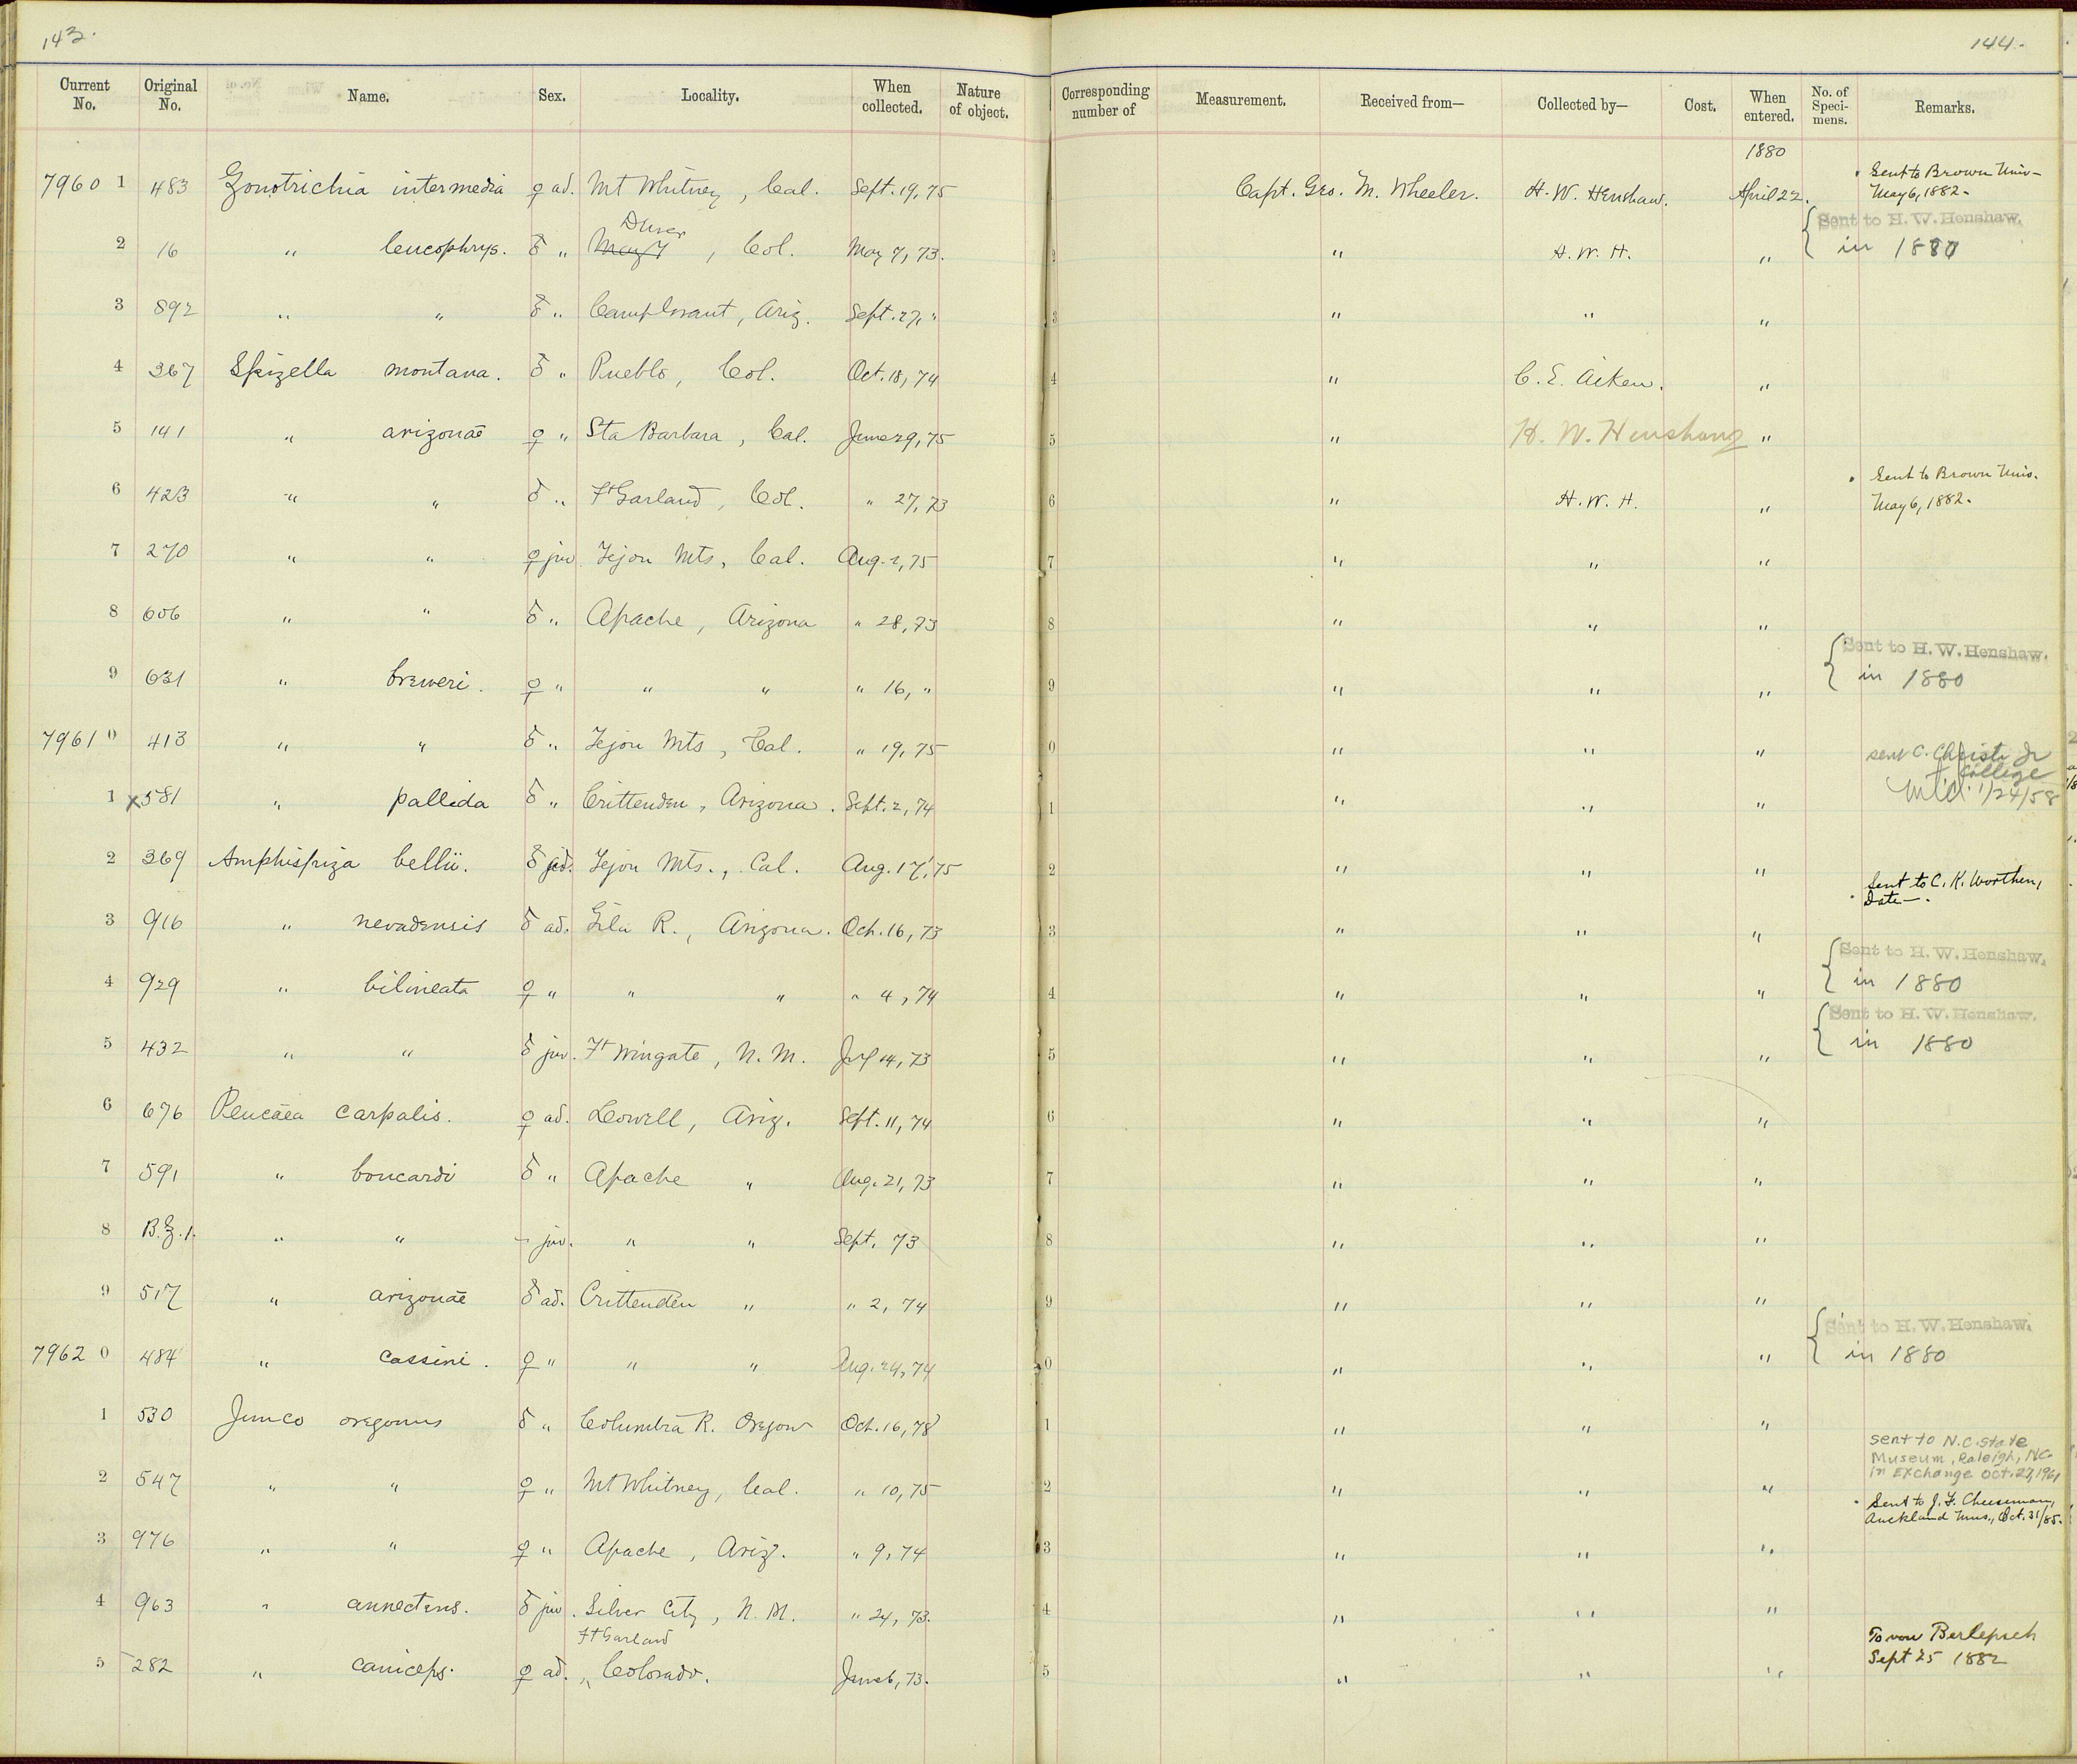 143.
144.
Current No. Original No. Name. Sex. Locality. When collected. Nature of object. Corresponding number of Measurement. Received from— Collected by— Cost. When entered. No. of Specimens. Remarks.
1880
7960 1 483 Zonotrichia intermedia ♀ ad. Mt Whitney, Cal. Sept. 19, 75 Capt. Geo. M. Wheeler. H. W. Henshaw. April 22. Sent to Brown Univ— May 6, 1882.
2 16 " leucophrys. ♂ " May 7 Denver, Col. May 7, 73. 2 " H. W. H. " Sent to H. W. Henshaw. in 1880
3 892 " " ♂ " Camp Grant, Ariz. Sept. 27, " 3 " " "
4 367 Spizella montana. ♂ " Pueblo, Col. Oct. 18, 74 4 " C. E. Aiken. "
5 141 " arizonae ♀ " Sta Barbara, Cal. June 29, 75 5 " H. W. Henshaw "
6 423 " " ♂ " Ft Garland, Col. " 27, 73 6 " H. W. H. " Sent to Brown Univ. May 6, 1882.
7 270 " " ♀ juv. Tejon Mts, Cal. Aug. 2, 75 7 " " "
8 606 " " ♂ " Apache, Arizona " 28, 73 8 " " "
9 631 " breweri. ♀ " " " " 16, " 9 " " " Sent to H. W. Henshaw. in 1880
7961 0 413 " " ♂ " Tejon Mts, Cal. " 19, 75 0 " " "
1 x581 " pallida ♂ " Crittenden, Arizona. Sept. 2, 74 1 " " " sent C. Christ Jr College Md. 1/24/58
2 369 Amphispiza bellii. ♂ ad. Tejon Mts., Cal. Aug. 17, 75 2 " " "
3 916 " nevadensis ♂ ad. Gila R., Arizona. Oct. 16, 73 3 " " " Sent to C. K. Worthen, Date—.
4 929 " bilineata ♀ " " " " 4, 74 4 " " " Sent to H. W. Henshaw. in 1880
5 432 " " ♂ juv. Ft Wingate, N. M. July 4, 73 5 " " " Sent to H. W. Henshaw. in 1880
6 676 Peucaea carpalis. ♀ ad. Lowell, Ariz. Sept. 11, 74 6 " " "
7 591 " boucardi ♂ " Apache " Aug. 21, 73 7 " " "
8 B.Z.1. " " — juv. " " Sept. 73 8 " " "
9 517 " arizonae ♂ ad. Crittenden " " 2, 74 9 " " "
7962 0 484 " cassini. ♀ " " " Aug. 24, 74 0 " " " Sent to H. W. Henshaw. in 1880
1 530 Junco oregonus ♂ " Columbia R. Oregon Oct. 16, 78 1 " " "
2 547 " " ♀ " Mt Whitney, Cal. " 10, 75 2 " " " sent to N.C. State Museum, Raleigh, NC. in Exchange Oct. 27, 1961
3 976 " " ♀ " Apache, Ariz. " 9, 74 3 " " " Sent to J. F. Cheeseman, Auckland Mus., Oct. 31/85.
4 963 " annectens. ♂ juv. Silver City, N. M. " 24, 73. 4 " " "
5 282 " caniceps. ♀ ad. Ft Garland, Colorado. June 6, 73. 5 " " " To von Berlepsch Sept 25 1882